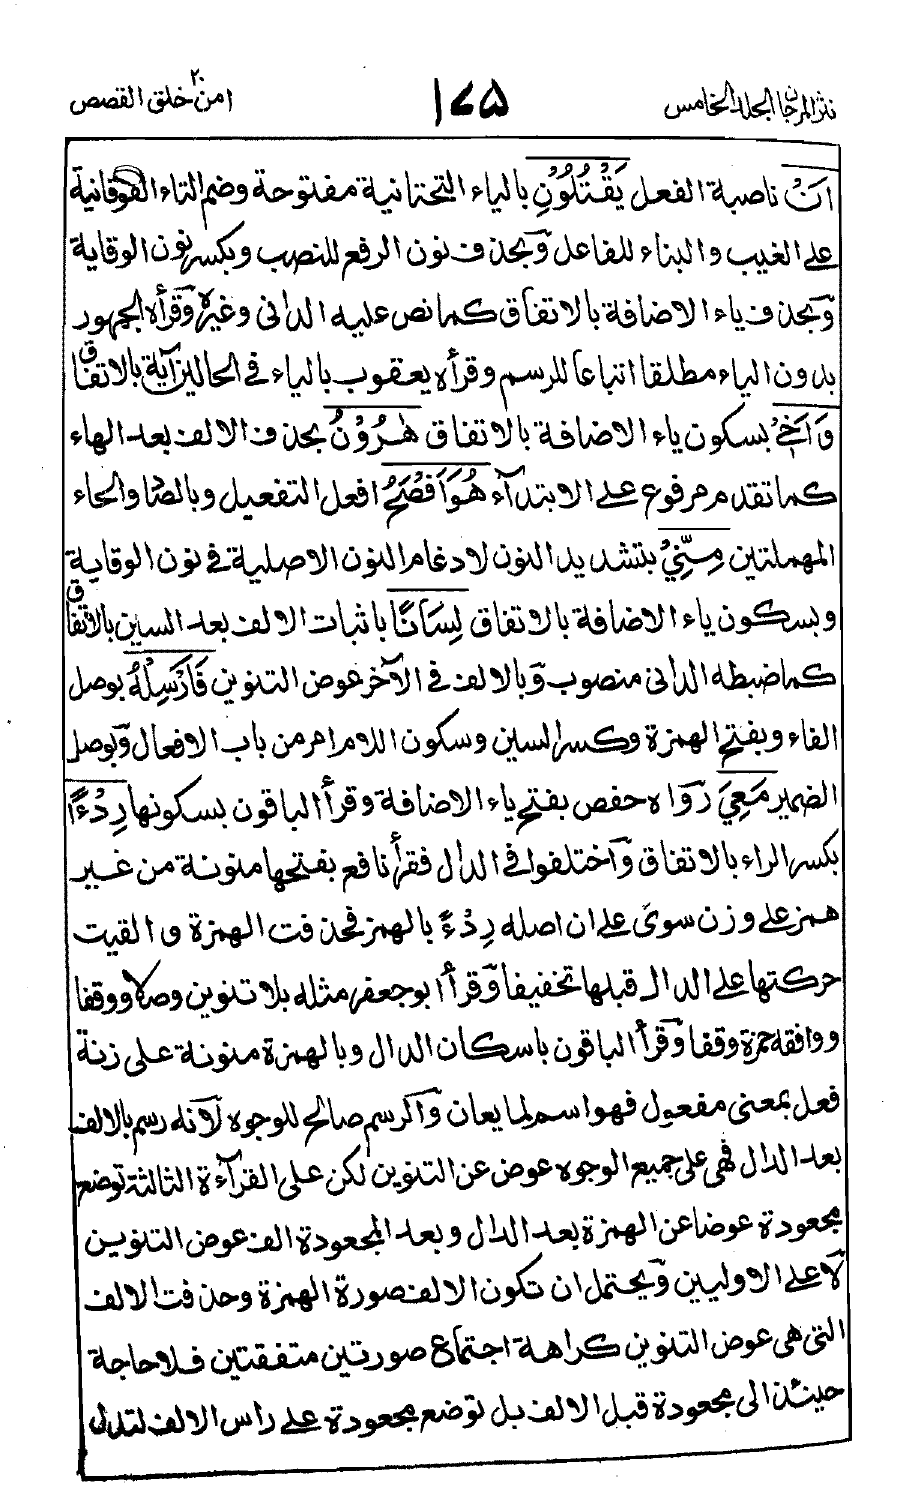 نثر المرجان الجلد الخامس ١٧٥ امن خلق ٢٠ القصص
اَنْ ناصبة الفعل يَقْتُلُوْنِ بالياء التحتانية مفتوحة وضم التاء الفوقانية
على الغيب والبناء للفاعل وبحذف نون الرفع للنصب وبكسر نون الوقاية
وبحذف ياء الاضافة بالاتفاق كما نص عليه الدانى وغيره وقرأه الجمهور
بدون الياء مطلقا اتباعا للرسم وقرأه يعقوب بالياء فى الحالين آية بالاتفاق
وَاَخِيْ بسكون ياء الاضافة بالاتفاق هٰرُوْنُ بحذف الالف بعد الهاء
كما تقدم مرفوع على الابتدآء هُوَ اَفْصَحُ افعل التفعيل وبالصاد والحاء
المهملتين مِنِّيْ بتشديد النون لادغام النون الاصلية فى نون الوقاية
وبسكون ياء الاضافة بالاتفاق لِسَانًا باثبات الالف بعد السين بالاتفاق
كما ضبطه الدانى منصوب وبالالف فى الآخر عوض التنوين فَاَرْسِلْهُ بوصل
الفاء وبفتح الهمزة وكسر السين وسكون اللام امر من باب الافعال وبوصل
الضمير مَعِيَ رواه حفص بفتح ياء الاضافة وقرأ الباقون بسكونها رِدْءًا
بكسر الراء بالاتفاق واختلفوا فى الدال فقرأ نافع بفتحها منونة من غير
همز على وزن سوىً على ان اصله رِدْءً بالهمز فحذفت الهمزة والقيت
حركتها على الدال قبلها تخفيفا وقرأ ابو جعفر مثله بلا تنوين وصلا ووقفا
ووافقه حمزة وقفا وقرأ الباقون باسكان الدال وبالهمزة منونة على زنة
فعل بمعنى مفعول فهو اسم لما يعان والرسم صالح للوجوه لانه رسم بالالف
بعد الدال فهى على جميع الوجوه عوض عن التنوين لكن على القرآءة الثالثة توضع
مجعودة عوضا عن الهمزة بعد الدال وبعد المجعودة الف عوض التنوين
لا على الاوليين ويحتمل ان تكون الالف صورة الهمزة وحذفت الالف
التى هى عوض التنوين كراهة اجتماع صورتين متفقتين فلا حاجة
حينئذ الى مجعودة قبل الالف بل توضع مجعودة على راس الالف لتدل